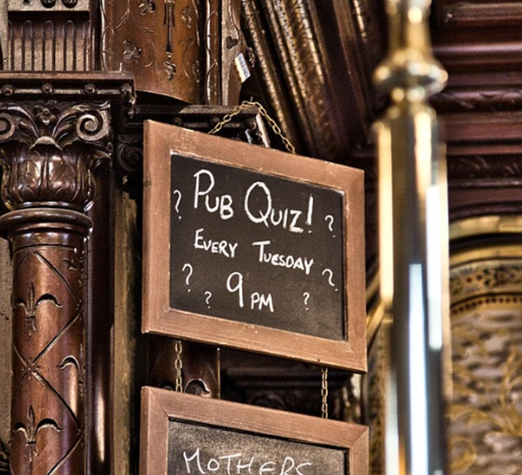 ? Pub Quiz! ?
Every Tuesday
? ? 9 PM ? ?
MOTHERS